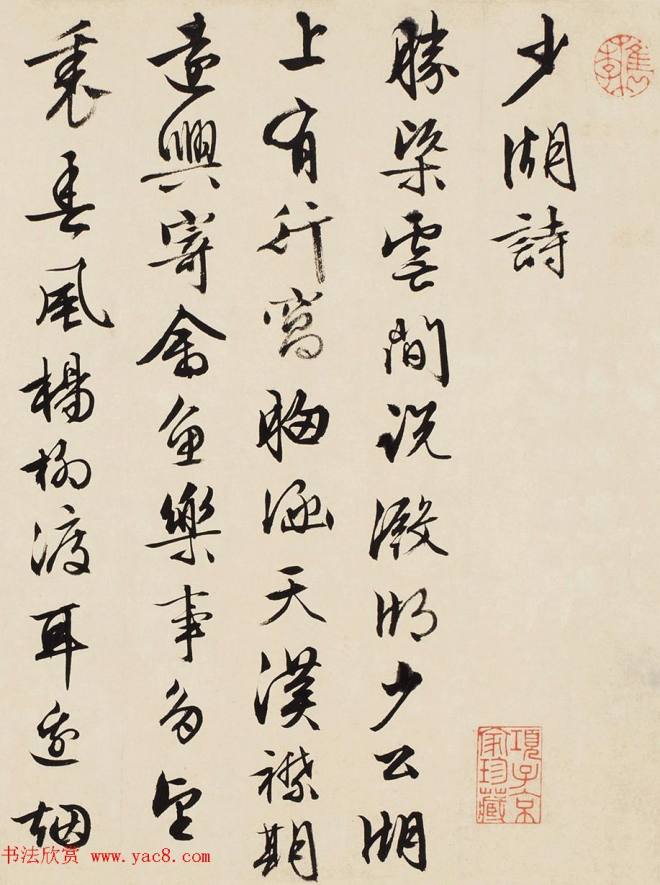 檇李
少湖詩
項子京
家珍藏
勝槩雲間說澱泖少公湖
上有行窩胸涵天漢襟期
遠興寄禽魚樂事多望
裏春風楊柳渡耳邊烟
书法欣赏 www.yac8.com